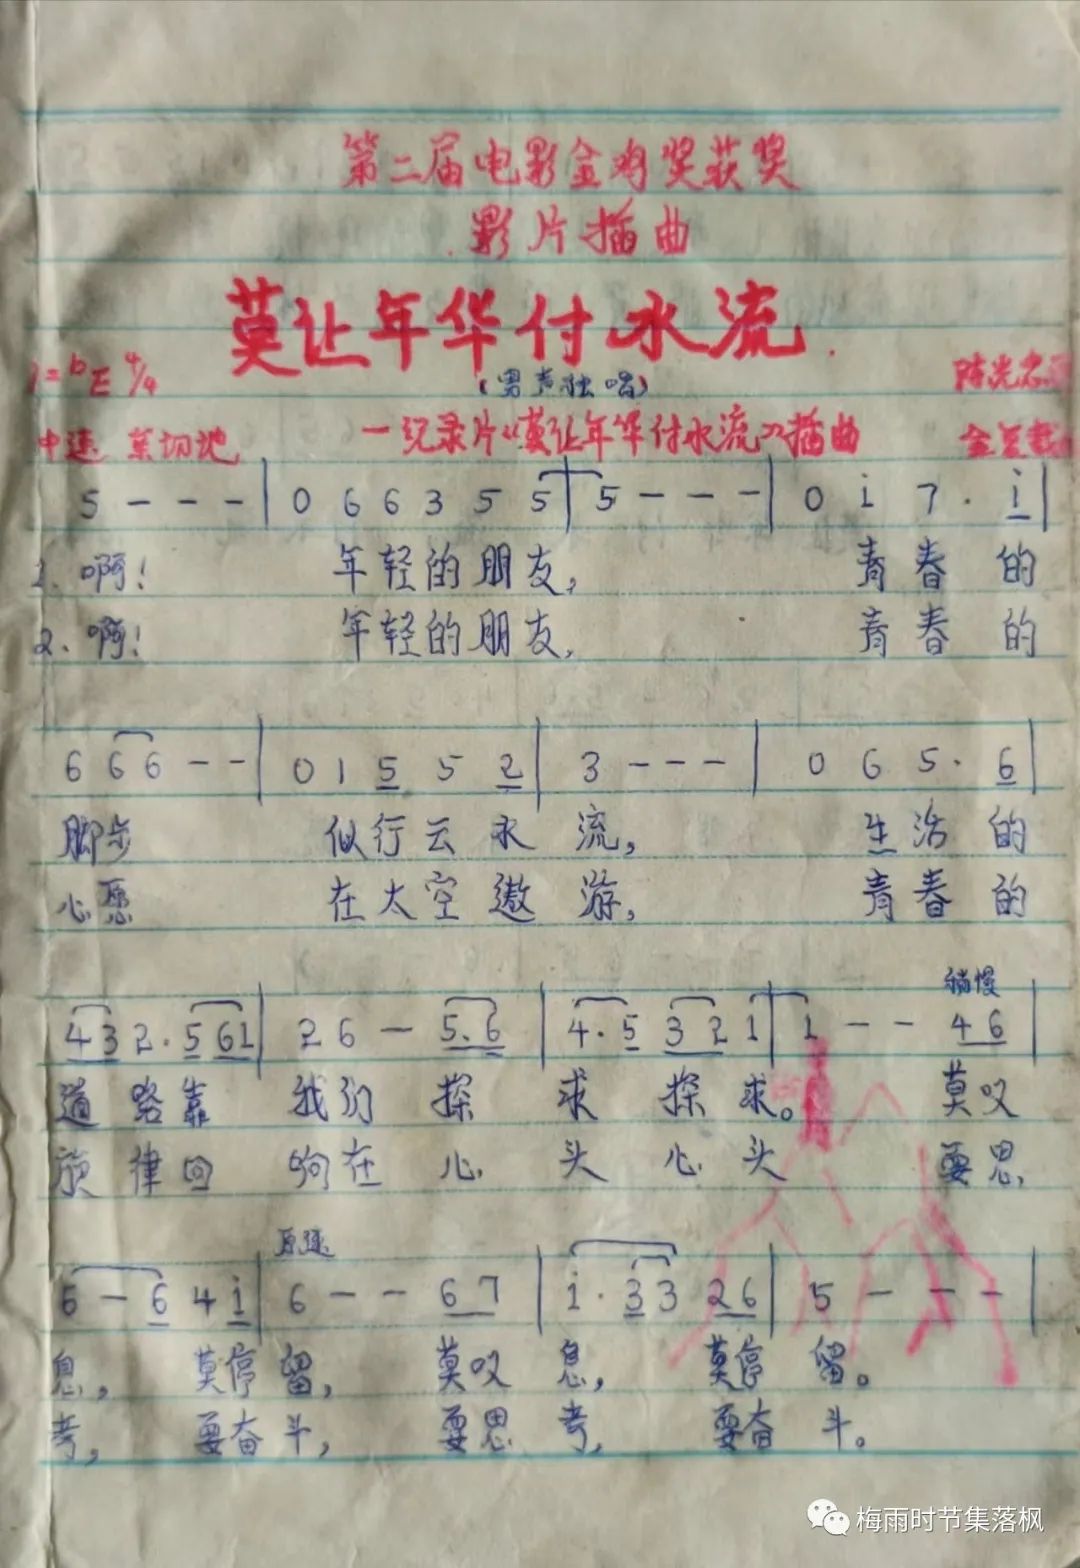 第二届电影金鸡奖获奖
影片插曲
莫让年华付水流
1=bE 4/4 (男声独唱) 陈光忠词
中速 亲切地 —记录片《莫让年华付水流》插曲
5 - - - | 0 6 6 3 5 5 5 | 5 - - - | 0 i 7 · i |
1. 啊! 年轻的朋友, 青春的
2. 啊! 年轻的朋友, 青春的
6 6 6 - - | 0 1 5 5 2 | 3 - - - | 0 6 5 · 6 |
脚步 似行云水流, 生活的
心愿 在太空遨游, 青春的
稍慢
4 3 2 · 5 6 1 | 2 6 - 5 · 6 | 4 · 5 3 2 1 | 1 - - 4 6 |
道路靠 我们探求探求。 莫叹
旋律回 响在心头心头 要思
原速
6 - 6 4 i | 6 - - 6 7 | i · 3 3 2 6 | 5 - - - |
息, 莫停留, 莫叹息, 莫停留。
考, 要奋斗, 要思考, 要奋斗。
梅雨时节集落枫